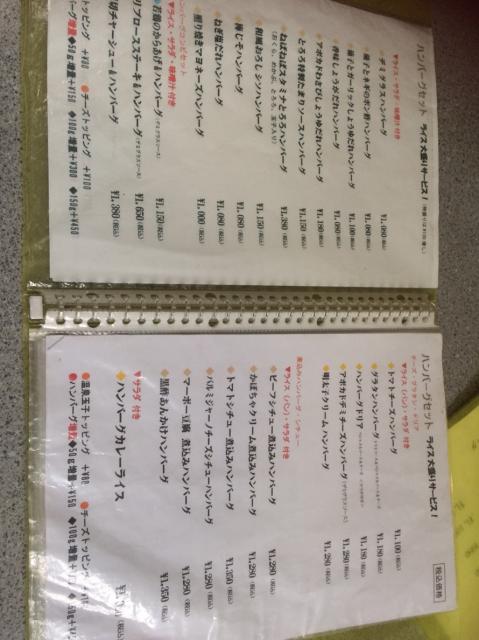 ハンバーグセット ライス大盛りサービス!
♥ライス・サラダ・味噌汁 付き
◆デミグラスハンバーグ ¥1,080(税込)
ハンバーグ ¥1,080(税込)
ハンバーグ ¥1,100(税込)
香味しょうがだれハンバーグ ¥1,080(税込)
◆アボカドわさびしょうゆだれハンバーグ ¥1,180(税込)
◆とろろ特製たまりソースハンバーグ ¥1,150(税込)
◆ねばねばスタミナとろろハンバーグ ¥1,380(税込)
(おくら、めかぶ、とろろ、玉子入り)
◆和風おろしシソハンバーグ ¥1,150(税込)
◆梅じそハンバーグ ¥1,080(税込)
◆ねぎ塩だれハンバーグ ¥1,080(税込)
◆照り焼きマヨネーズハンバーグ ¥1,000(税込)
ンバーグコンビセット
♥ライス・サラダ・味噌汁 付き
若鶏のからあげ&ハンバーグ(デミグラスソース) ¥1,150(税込)
リブロースステーキ&ハンバーグ(デミグラスソース) ¥1,650(税込)
切チャーシュー&ハンバーグ ¥1,380(税込)
トッピング +¥80 ●チーズトッピング +¥100
バーグ増量◆50g増量+¥150 ◆100g増量+¥300 ◆150g+¥450
ハンバーグセット ライス大盛りサービス!
税込価格
チーズ・グラタン・ドリア
♥ライス(パン)・サラダ 付き
◆トマトチーズハンバーグ ¥1,100(税込)
◆グラタンハンバーグ ¥1,180(税込)
◆ハンバーグドリア ¥1,180(税込)
◆アボカドデミチーズハンバーグ(デミグラスソース) ¥1,280(税込)
◆明太子クリームハンバーグ ¥1,280(税込)
煮込みハンバーグ・シチュー
♥ライス(パン)・サラダ 付き
◆ビーフシチュー煮込みハンバーグ ¥1,280(税込)
◆かぼちゃクリーム煮込みハンバーグ ¥1,280(税込)
◆トマトシチュー煮込みハンバーグ ¥1,350(税込)
◆パルミジャーノチーズシチューハンバーグ ¥1,280(税込)
◆マーボー豆腐 煮込みハンバーグ ¥1,280(税込)
◆黒酢あんかけハンバーグ ¥1,350(税込)
♥サラダ 付き
◆ハンバーグカレーライス
●温泉玉子トッピング +¥80 ●チーズトッピング +¥
●ハンバーグ増量◆50g増量+¥150 ◆100g増量+¥